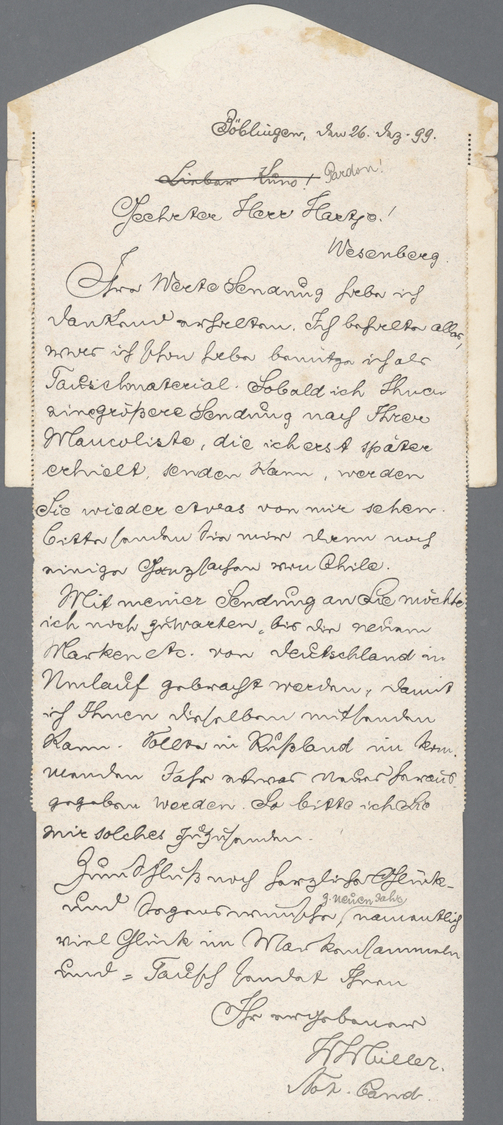 Böblingen, den 26. Dez. 99.
Lieber Kuno! Pardon!
Geehrter Herr Hartje!
Wesenberg.
Ihre Werte Sendung habe ich
dankend erhalten. Ich behalte alles,
was ich schon habe benutze ich als
Tauschmaterial. Sobald ich Ihnen
eine größere Sendung nach Ihrer
Mancoliste, die ich erst später
erhielt, senden kann, werden
Sie wieder etwas von mir sehen.
bitte senden Sie mir dann noch
einige Ganzsachen von Chile.
Mit meiner Sendung an Sie möchte
ich noch zuwarten, bis die neuen
Marken etc. von Deutschland in
Umlauf gebracht werden, damit
ich Ihnen dieselben mitsenden
kann. Sollte in Rußland im kom-
menden Jahr etwas neues heraus-
gegeben werden. So bitte ich Sie
mir solches zuzusenden.
Zum Schluß noch herzliche Glück-
und Segenswünsche z. neuen Jahr, namentlich
viel Glück im Markensammeln
und = Tausch sendet Ihnen
Ihr ergebener
Müller.
Not. Cand.